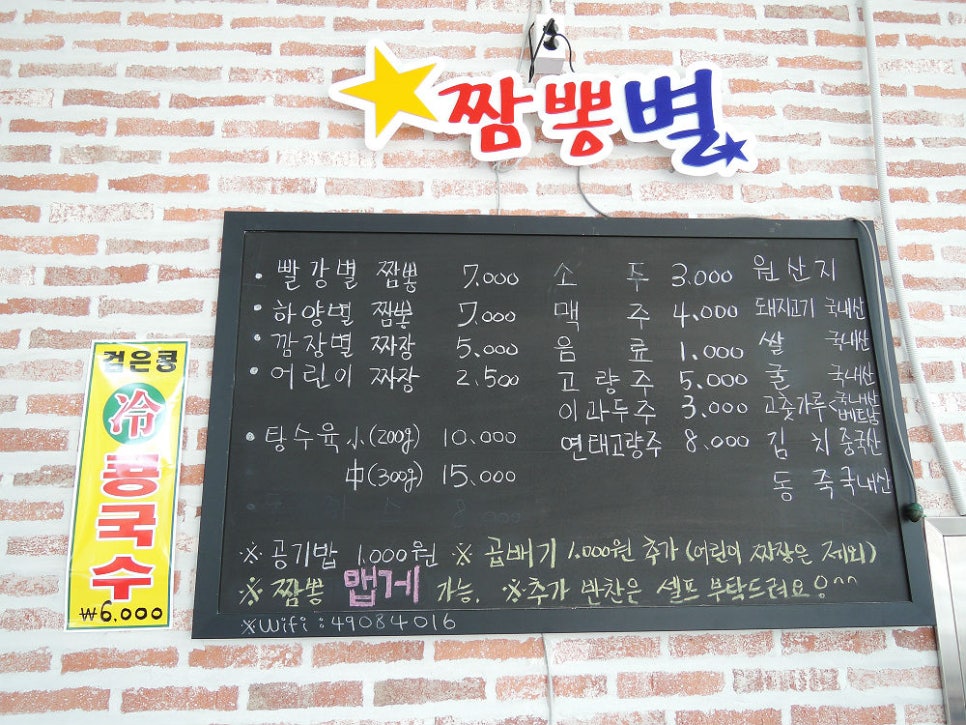 짬뽕별
• 빨강별 짬뽕 7,000
• 하양별 짬뽕 7,000
• 깜장별 짜장 5,000
• 어린이 짜장 2,500
• 탕수육 小(200g) 10,000
中(300g) 15,000
소 주 3,000
맥 주 4,000
음 료 1,000
고량주 5,000
이과두주 3,000
연태고량주 8,000
원산지
돼지고기 국내산
쌀 국내산
굴 국내산
고춧가루<국내산 베트남
김 치 중국산
동 죽 국내산
※ 공기밥 1,000원 ※ 곱배기 1,000원 추가 (어린이 짜장은 제외)
※ 짬뽕 맵게 가능. ※추가 반찬은 셀프 부탁드려요^^
※Wifi : 49084016
검은콩
冷
콩국수
₩6,000